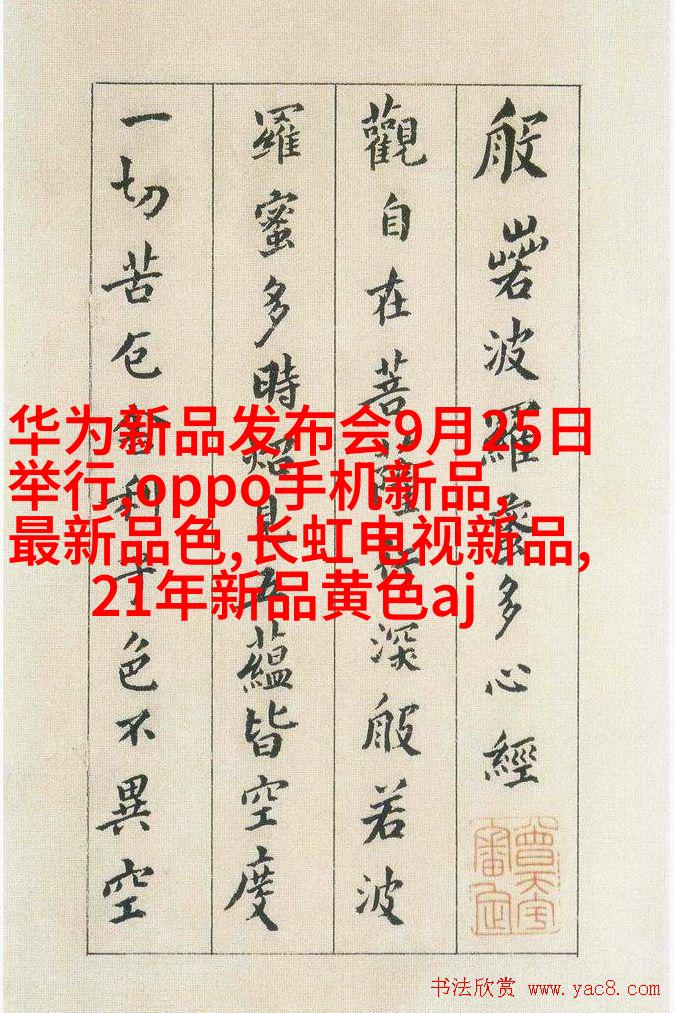 般若波羅蜜多心經
觀自在菩薩行深般若波
羅蜜多時照見五蘊皆空度
一切苦厄舍利子色不異空
华为新品发布会9月25日
举行,oppo手机新品,
最新品色,长虹电视新品,
21年新品黄色aj
书法欣赏 www.yac8.com